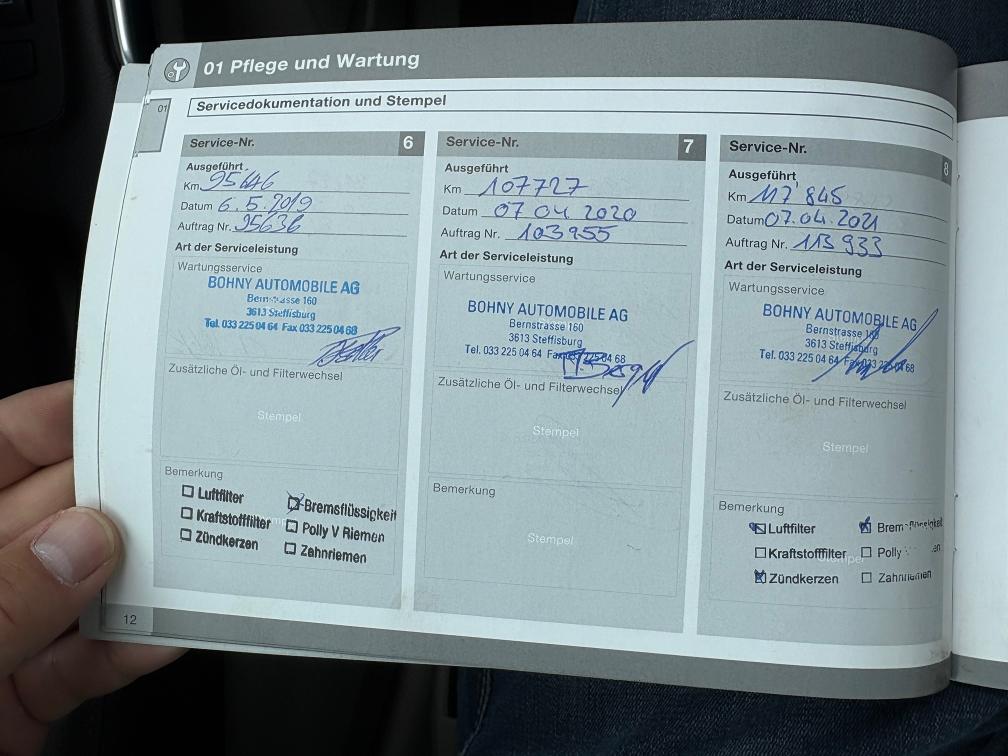 01 Pflege und Wartung
01
Servicedokumentation und Stempel
Service-Nr. 6
Ausgeführt
Km 95646
Datum 6.5.2019
Auftrag Nr. 95636
Art der Serviceleistung
Wartungsservice
BOHNY AUTOMOBILE AG
Bernstrasse 160
3613 Steffisburg
Tel. 033 225 04 64 Fax 033 225 04 68
Zusätzliche Öl- und Filterwechsel
Stempel
Bemerkung
Luftfilter Bremsflüssigkeit
Kraftstofffilter Polly V Riemen
Zündkerzen Zahnriemen
Service-Nr. 7
Ausgeführt
Km 107727
Datum 07 04. 2020
Auftrag Nr. 103955
Art der Serviceleistung
Wartungsservice
BOHNY AUTOMOBILE AG
Bernstrasse 160
3613 Steffisburg
Tel. 033 225 04 64 Fax 033 225 04 68
Zusätzliche Öl- und Filterwechsel
Stempel
Bemerkung
Stempel
Service-Nr. 8
Ausgeführt
Km 117'845
Datum 07.04.2021
Auftrag Nr. 113 933
Art der Serviceleistung
Wartungsservice
BOHNY AUTOMOBILE AG
Bernstrasse 160
3613 Steffisburg
Tel. 033 225 04 64 Fax 033 225 04 68
Zusätzliche Öl- und Filterwechsel
Stempel
Bemerkung
Luftfilter Bremsflüssigkeit
Kraftstofffilter Polly
Zündkerzen Zahnriemen
12